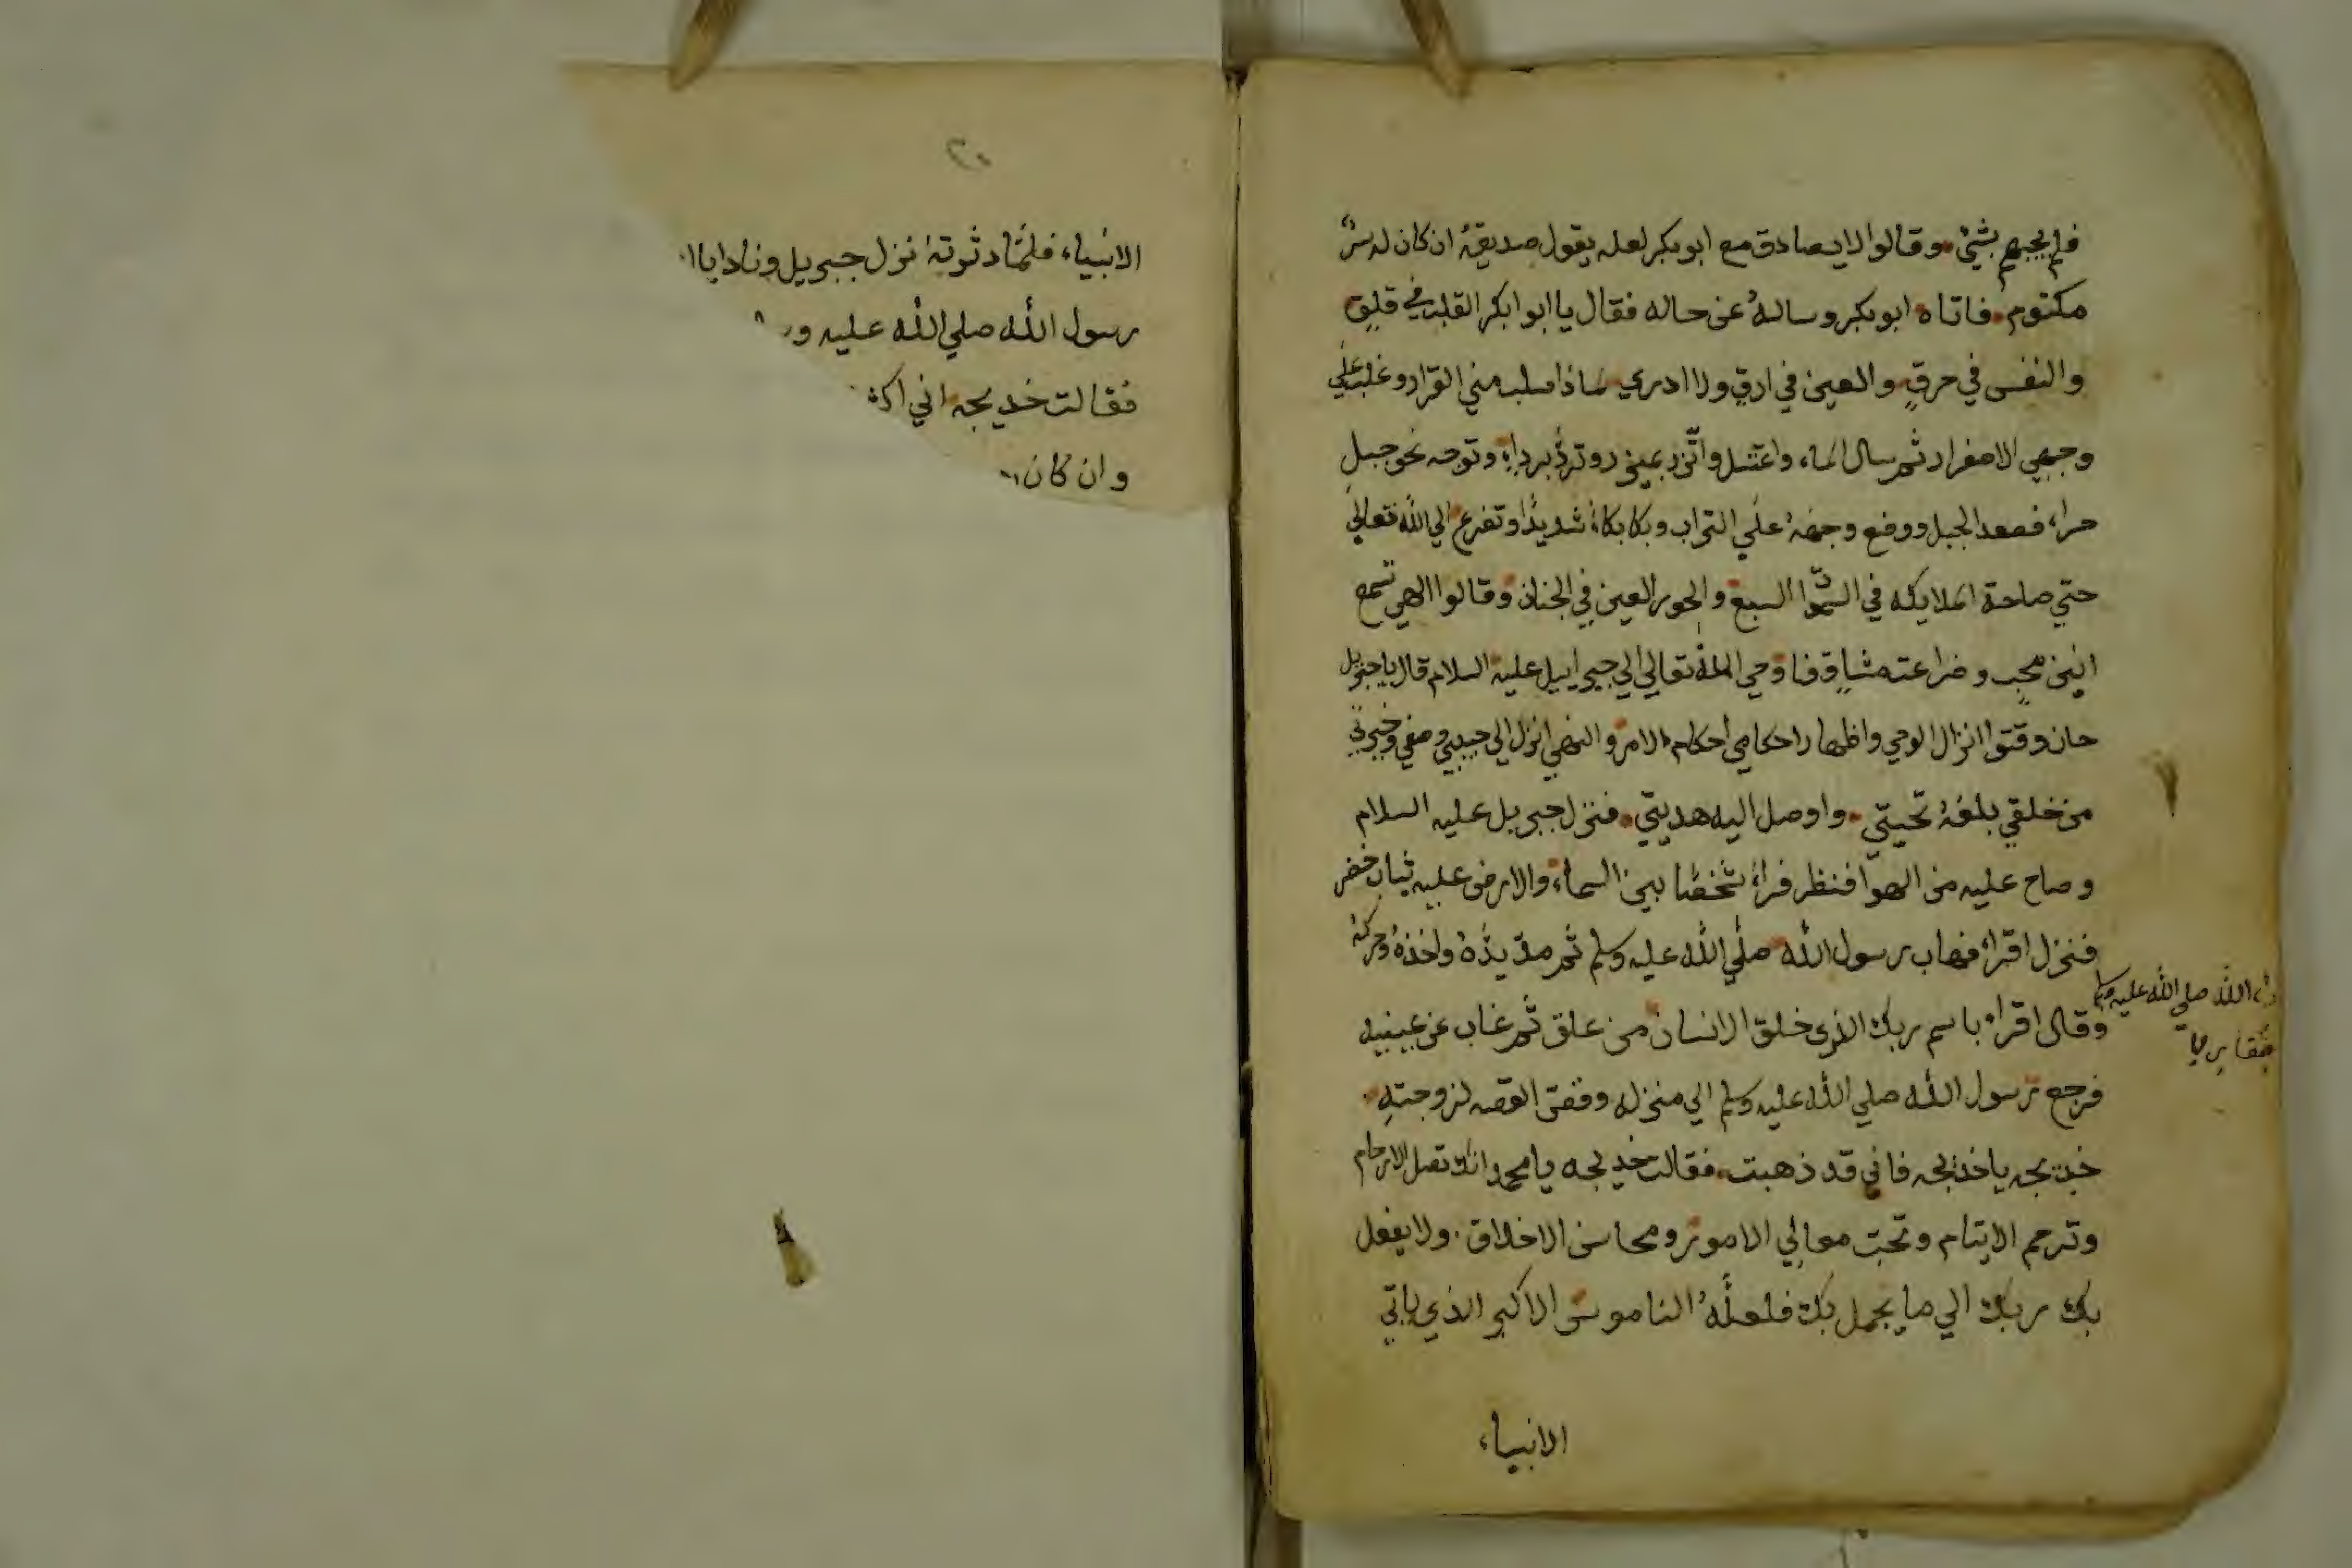 فلم يجبهم بشيئ وقالوا لا يصادق مع ابو بكر لعله يقول صديقه ان كان له سر
مكتوم فاتاه ابو بكر وساله عن حاله فقال يا ابو ابكر القلب في قلق
والنفس في حرق والعين في ارق ولا ادري ماذا سلب مني القرار وغلب علي
وجهي الاصفرار ثم سال الماء واغتسل واتزر بميزر وتردا برداء وتوجه نحو جبل
حراء فصعد الجبل ووضع وجهه علي التراب وبكا بكاء شديدا وتضرع الي الله تعالي
حتي صاحة الملايكه في السموات السبع والحور العين في الجنان وقالوا الهي تسمع
انين محب وضراعته مشاق فاوحي الله تعالي الي جبرايل عليه السلام قال يا جبريل
حان وقتو انزال الوحي واظهار احكامي احكام الامر والنهي انزل الي حبيبي وصفي وخيرتي
من خلقي بلغه تحيتي واوصل اليه هديتي فنزل جبريل عليه السلام
وصاح عليه من الهوا فنظر فراء شخصا بين السماء والارض عليه ثياب خضر
فنزل اقراء فهاب رسول الله صلي الله عليه وسلم ثم مد يده واخذه وحركه
وقال اقراء باسم ربك الذي خلق الانسان من علق ثم غاب عن عينيه
فرجع رسول الله صلي الله عليه وسلم الي منزله وقص القصه لزوجته
خديجه يا خديجه فاني قد ذهبت فقالت خديجه يا محمد انك تصل الارحام
وترحم الايتام وتحب معالي الامور ومحاسن الاخلاق ولا يفعل
بك ربك الي ما يجمل بك فلعله الناموس الاكبر الذي ياتي
الانبياء
الله صلي الله عليه وسلم
٢٠
الانبياء فلما دثوته نزل جبريل ونادا يا
رسول الله صلي الله عليه
فقالت خديجه اني
وان كان